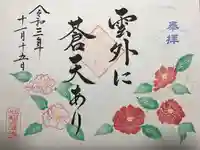 奉拝
雲外に
蒼天あり
令和三年
十一月十五日